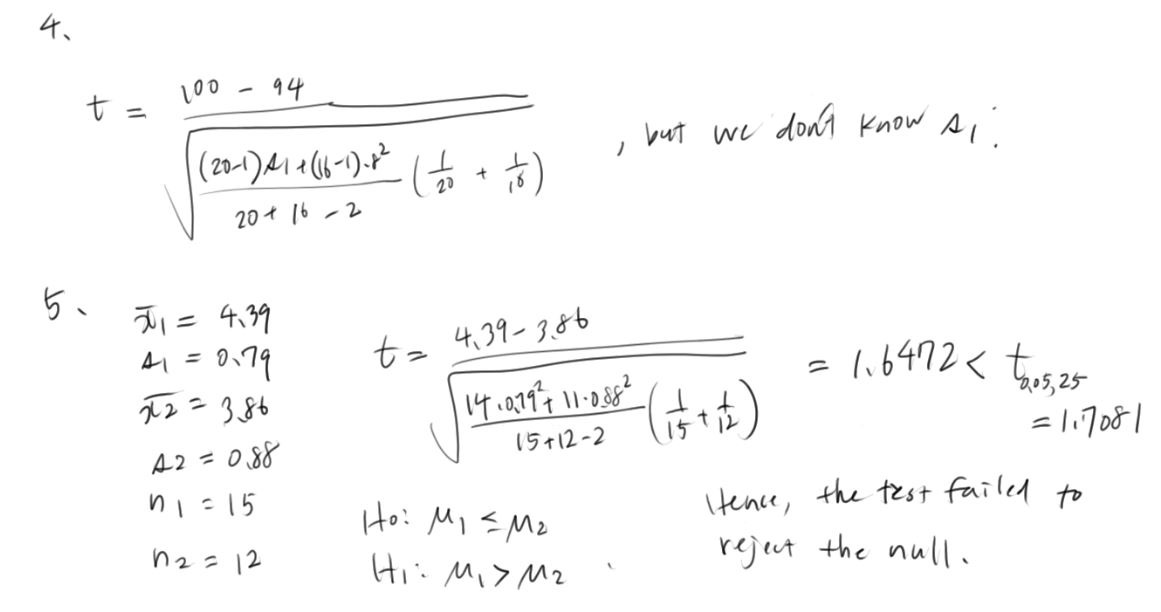 4、
t = (100 - 94) / √( ((20-1)s1+(16-1)·8²) / (20+16-2) (1/20 + 1/16) ) , but we don't know s1.
5、
x̄1 = 4.39
s1 = 0.79
x̄2 = 3.86
s2 = 0.88
n1 = 15
n2 = 12
t = (4.39-3.86) / √( (14·0.79²+11·0.88²) / (15+12-2) (1/15+1/12) ) = 1.6472 < t0.05,25
= 1.7081
H0: μ1 ≤ μ2
H1: μ1 > μ2 .
Hence, the test failed to
reject the null.